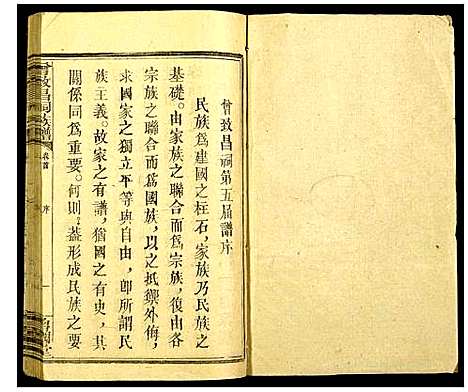 曾致昌祠第五届譜序
民族爲建國之柱石，家族乃民族之
基礎。由家族之聯合而爲宗族，復由各
宗族之聯合而爲國族，以之抵禦外侮，
求國家之獨立平等與自由，卽所謂民
族主義。故家之有譜，猶國之有史，其
關係同爲重要。何則？葢形成民族之要
曾致昌祠族譜
卷首
序
一